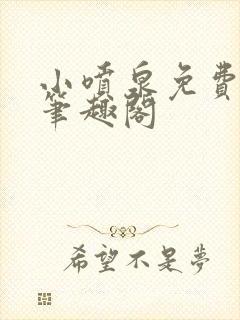 小噴泉免費
筆趣閣
希望不是夢